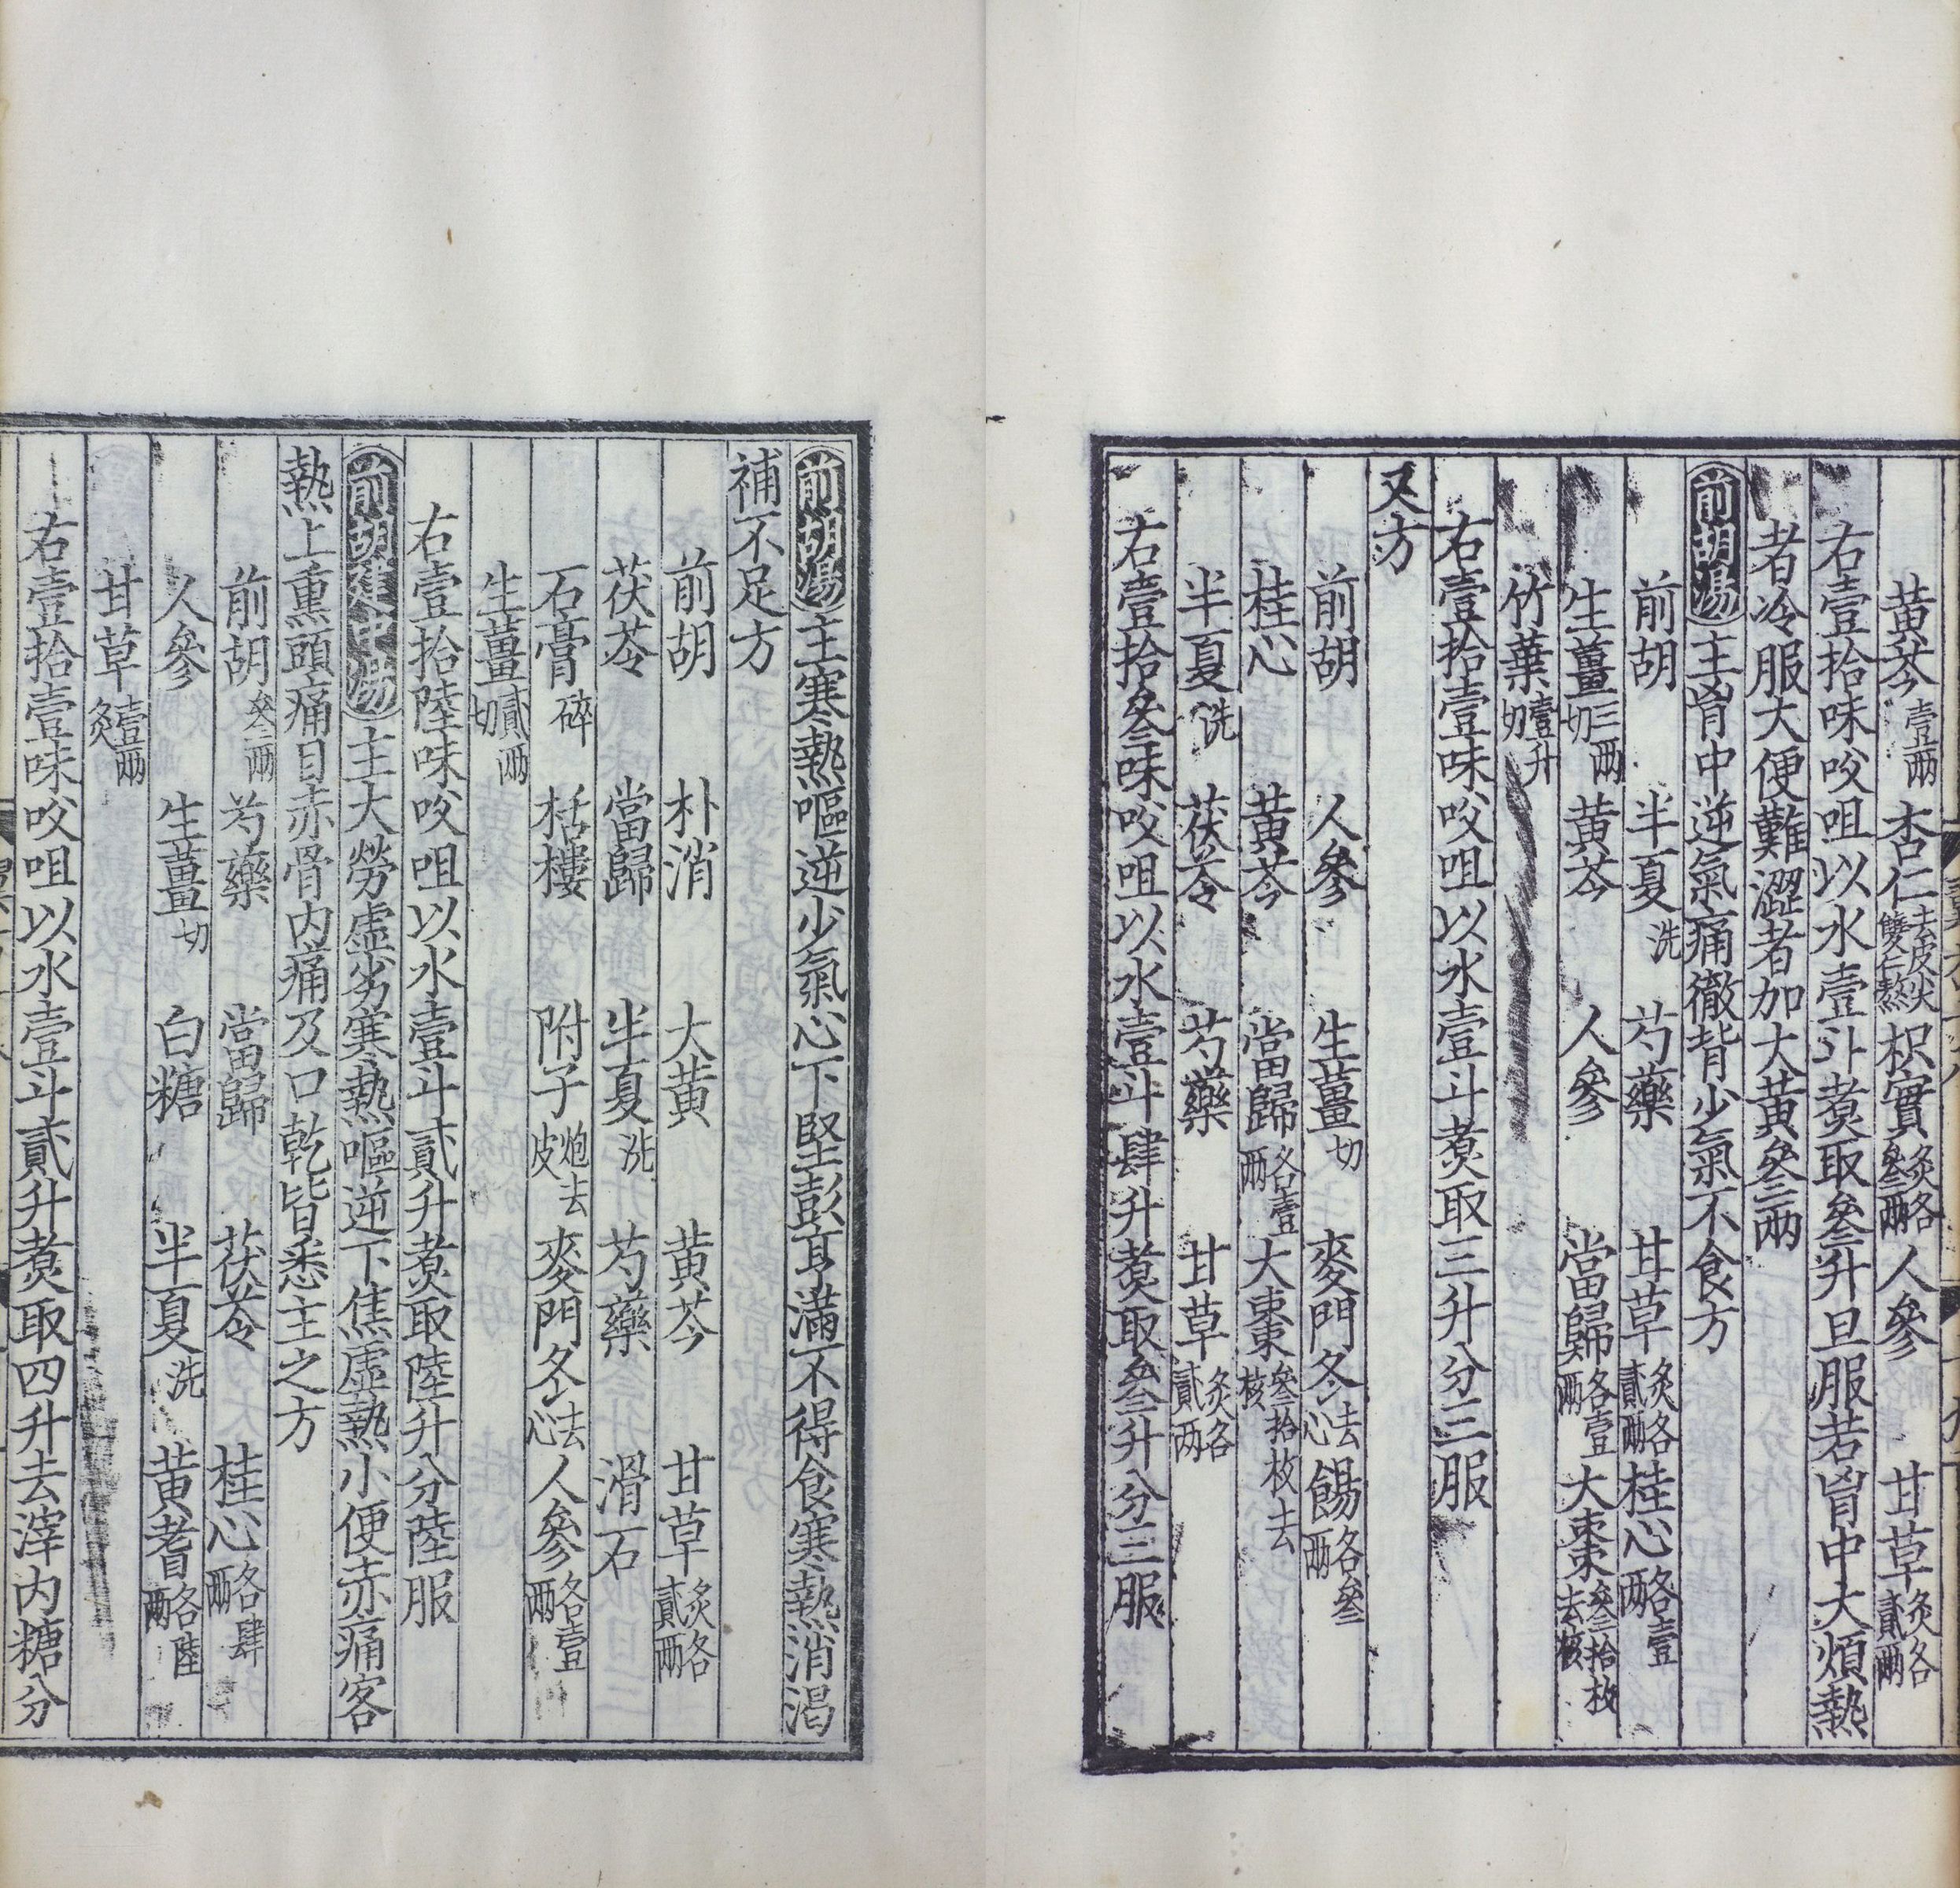 黄芩壹兩 杏仁去皮尖雙仁熬 枳實炙各叁兩 人參 甘草炙各貳兩
右壹拾味㕮咀以水壹斗煮取叁升旦服若胷中大煩熱
者冷服大便難澀者加大黄叁兩
前胡湯主胷中逆氣痛徹背少氣不食方
前胡 半夏洗 芍藥 甘草炙各貳兩 桂心各壹兩
生薑三兩切 黄芩 人參 當歸各壹兩 大棗叁拾枚去核
竹葉壹升切
右壹拾壹味㕮咀以水壹斗煮取三升分三服
又方
前胡 人參 生薑切 麥門冬去心 餳各叁兩
桂心 黄芩 當歸各壹兩 大棗叁拾枚去核
半夏洗 茯苓 芍藥 甘草炙各貳兩
右壹拾叁味㕮咀以水壹斗肆升煮取叁升分三服
前胡湯主寒熱嘔逆少氣心下堅彭亨滿不得食寒熱消渴
補不足方
前胡 朴消 大黄 黄芩 甘草炙各貳兩
茯苓 當歸 半夏洗 芍藥 滑石
石膏碎 栝樓 附子炮去皮 麥門冬去心 人參各壹兩
生薑貳兩切
右壹拾陸味㕮咀以水壹斗貳升煮取陸升分陸服
前胡建中湯主大勞虛劣寒熱嘔逆下焦虛熱小便赤痛客
熱上熏頭痛目赤骨肉痛及口乾皆悉主之方
前胡叁兩 芍藥 當歸 茯苓 桂心各肆兩
人參 生薑切 白糖 半夏洗 黄耆各陸兩
甘草壹兩炙
右壹拾壹味㕮咀以水壹斗貳升煮取四升去滓内糖分